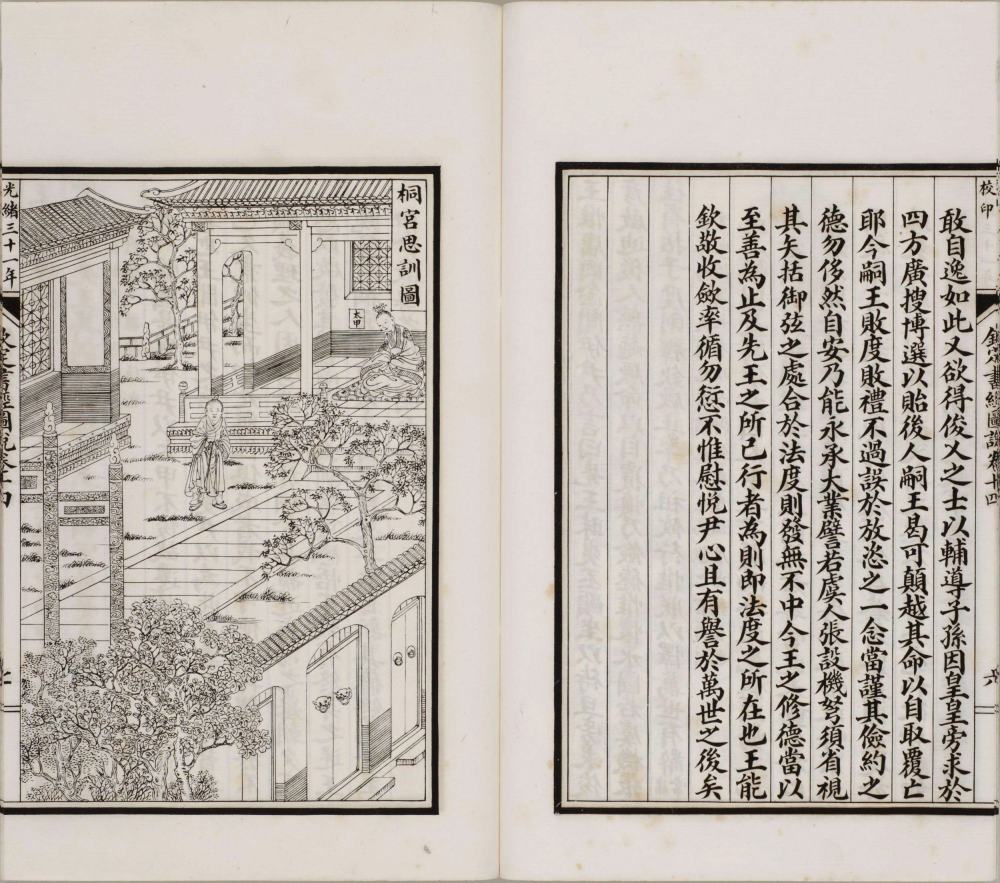 校印
欽定書經圖說 卷十四
六
敢自逸如此又欲得俊乂之士以輔導子孫因皇皇旁求於
四方廣搜博選以貽後人嗣王曷可顛越其命以自取覆亡
耶今嗣王敗度敗禮不過誤於放恣之一念當謹其儉約之
德勿侈然自安乃能永承大業譬若虞人張設機弩須省視
其矢括御弦之處合於法度則發無不中今王之修德當以
至善為止及先王之所已行者為則即法度之所在也王能
欽敬收斂率循勿愆不惟慰悅尹心且有譽於萬世之後矣
桐宮思訓圖
太甲
光緒三十一年
欽定書經圖說卷十四